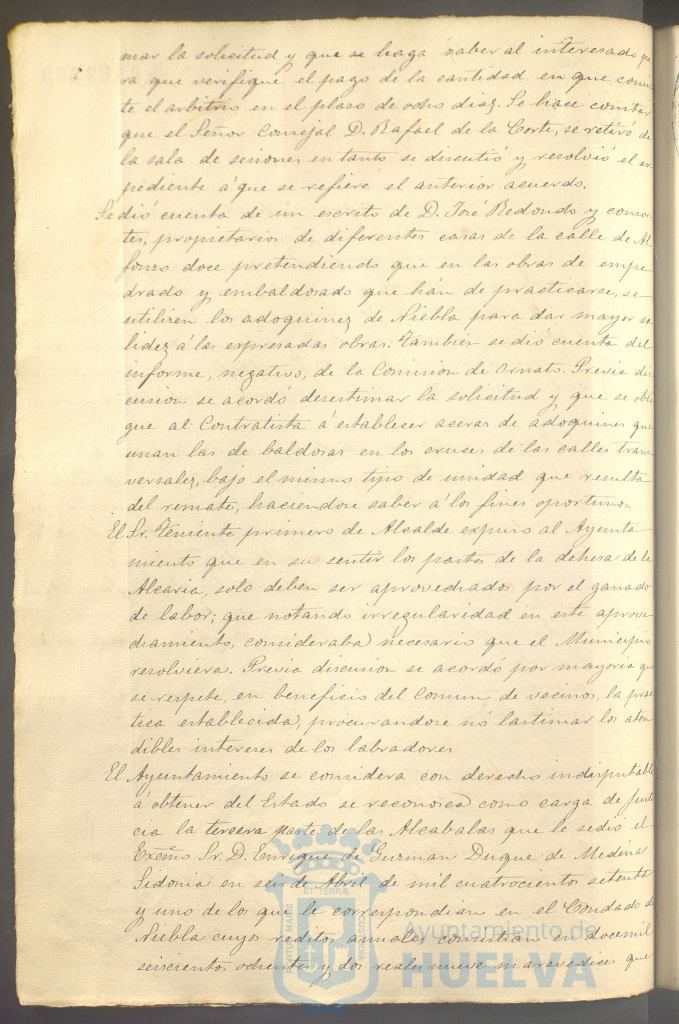 mar la solicitud y que se haga saber al interesado pa
ra que verifique el pago de la cantidad en que consis
te el arbitrio en el plazo de ocho dias. Se hace constar
que el Señor Concejal D. Rafael de la Corte, se retiró de
la sala de sesiones en tanto se discutió y resolvió el es
pediente á que se refiere el anterior acuerdo.
Se dió cuenta de un escrito de D. José Redondo y consor
tes, propietarios de diferentes casas de la calle de Al
fonso doce pretendiendo que en las obras de empe
drado y embaldosado que han de practicarse, se
utilizen los adoquines de Niebla para dar mayor so
lidez á las expresadas obras. Tambien se dió cuenta del
informe, negativo, de la Comision de Ornato. Previa dis
cusion se acordó desestimar la solicitud y que se obli
gue al Contratista á establecer aceras de adoquines que
unan las de baldosas en los cruses de las calles trans
versales, bajo el mismo tipo de unidad que resulta
del remate, haciendose saber á los fines oportunos.
El Sr. Teniente primero de Alcalde expuso al Ayunta
miento que en su sentir los pastos de la dehesa de la
Alcaria, solo deben ser aprovechados por el ganado
de labor; que notando irregularidad en este aprove
chamiento, consideraba necesario que el Municipio
resolviera. Previa discusion se acordó por mayoria que
se respete, en beneficio del comun de vecinos, la prac
tica establecida, procurandose nó lastimar los aten
dibles intereses de los labradores
El Ayuntamiento se considera con derecho indisputable
á obtener del Estado se reconosca como carga de Justi
cia la tercera parte de las Alcabalas que le sedió el
Excmo. Sr. D. Enrique de Guzman Duque de Medina
Sidonia en seis de Abril de mil cuatrocientos setenta
y uno de los que le correspondian en el Condado de
Niebla cuyos reditos anuales consistian en docemil
seiscientos ochenta y dos reales nueve maravedices que
Ayuntamiento de
HUELVA